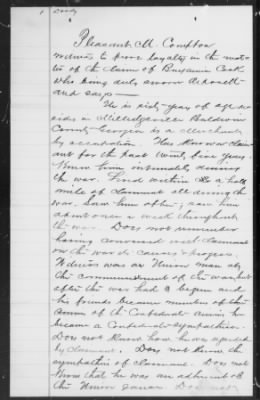 Pleasant M. Compton
witness to prove loyalty in the mat-
ter of the claim of Benjamin Cook
who being duly sworn deposeth
and says —
He is sixty years of age re
sides in Milledgeville Baldwin
County Georgia is a Merchant
by occupation. Has known claim
ant for the past twenty five years.
Knew him intimately during
the war. Lived within a half
mile of claimant all during the
war. Saw him often; saw him
about once a week throughout
the war. Does not remember
having conversed with claimant
on the war its causes & progress.
Witness was a Union man at
the commencement of the war, but
after the war had begun and
his friends became members of the
Confederate Armies he
became a Confederate sympathiser.
Does not know how he was regarded
by claimant. Does not know the
sympathies of claimant. Does not
know that he was an adherent of
the Union cause. Does not